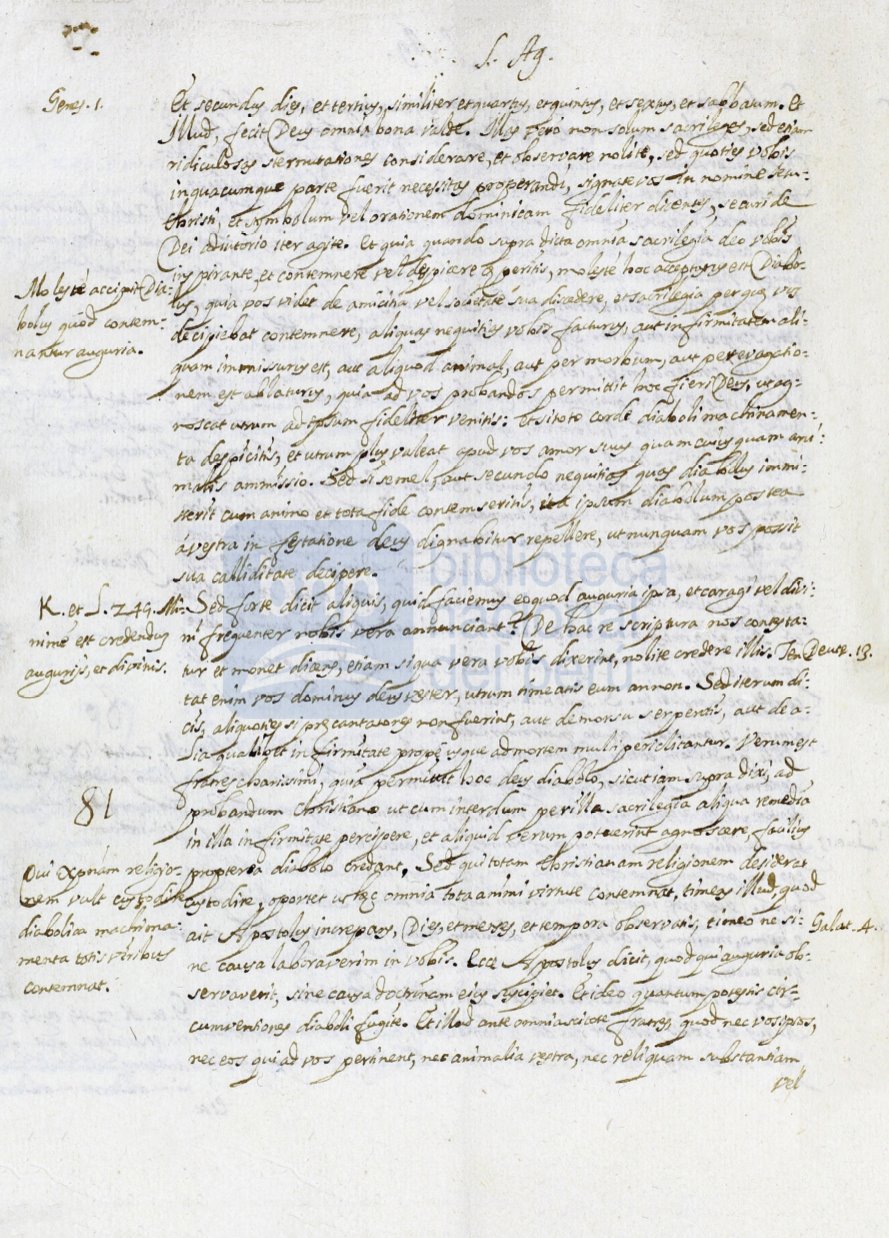 S. Ag.
Genes. 1.
Et secundus dies, et tertius, similiter et quartus, et quintus, et sextus, et sabbatum. Et
Illud, fecit Deus omnia bona valde. Illas vero non solum sacrilegas, sed etiam
ridiculosas sternutationes considerare, et observare nolite, sed quoties vobis
in quacumque parte fuerit necessitas properandi, signate vos in nomine Iesu
Christi, et symbolum vel orationem dominicam fideliter dicentes, securi de
Dei adiutorio iter agite. Et quia quando supra dicta omnia sacrilegia deo vobis
inspirante, et contemnere vel despicere ceperitis, molesté hoc accepturus est Diabo-
lus, quia vos videt de amicitia vel societate sua discedere, et sacrilegia per quę vos
decipiebat contemnere, aliquas nequitias vobis facturus, aut infirmitatem ali-
quam immissurus est, aut aliquod animal, aut per morbum, aut per evagatio-
nem est ablaturus, quia ad vos probandos permittit hoc fieri Deus, ut ag-
noscat utrum ad ipsum fideliter venitis: et si toto corde diaboli machinamen-
ta despicitis, et utrum plus valeat apud vos amor suus quam cuiusquam ani-
malis ammissio. Sed si semel, aut secundo nequitias quas diabolus immi-
serit cum animo et tota fide contemseritis, ita ipsum diabolum postea
á vestra infestatione deus dignabitur repellere, ut nunquam vos possit
sua calliditate decipere.
Molesté accipit Dia-
bolus quód contem-
nantur auguria.
K. et L. 249. Mi-
nimé est credendum
augurijs, et divinis.
Sed forte dicit aliquis, quid faciemus eo quod auguria ipsa, et caragi vel divi-
ni frequenter nobis vera annunciant? De hac re scriptura nos contesta-
tur et monet dicens, etiam si qua vera vobis dixerint, nolite credere illis. Ten
Deute. 13.
tat enin vos dominus deus vester, utrum timeatis eum annon. Sed iterum di-
cis, aliquoties si pręcantatores non fuerint, aut de morsu serpentis, aut de a-
lia qualibet infirmitate propę usque ad mortem multi periclitantur. Verum est
fratres charissimi, quia permittit hoc deus diabolo, sicut iam supra dixi, ad
probandum Christiano ut cum interdum per illa sacrilegia aliqua remedia
in illa infirmitate percipere, et aliquid verum potuerint agnoscere, facilius
propterea diabolo credant. Sed qui totam Christianam religionem desiderat
custodire, oportet ut hęc omnia tota animi virtute contemnat, timens illud quod
ait Apostolus increpans, Dies, et menses, et tempora observatis, timeo ne si-
ne causa laboraverim in vobis. Ecce Apostolus dicit, quod qui auguria ob-
servaverit, sine causa doctrinam eius suscipiet. Et ideo quantum potestis cir-
cumventiones diaboli fugite. Et illud ante omnia scitote fratres, quod nec vos ipsos,
nec eos qui ad vos pertinent, nec animalia vestra, nec reliquam substantiam
vel
81
Qui xpnám religio-
nem vult custodire
diabolica machina-
menta totis viribus
contemnat.
Galat. 4.
biblioteca
nacional
del perú